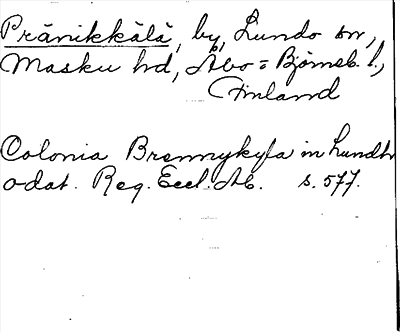 Pränikkälä, by, Lundo sn,
Masku hd, Åbo = Björneb. l.,
Finland
Colonia Brennykyla in Lundh
odat. Reg. Eccl. Ab. s. 577.